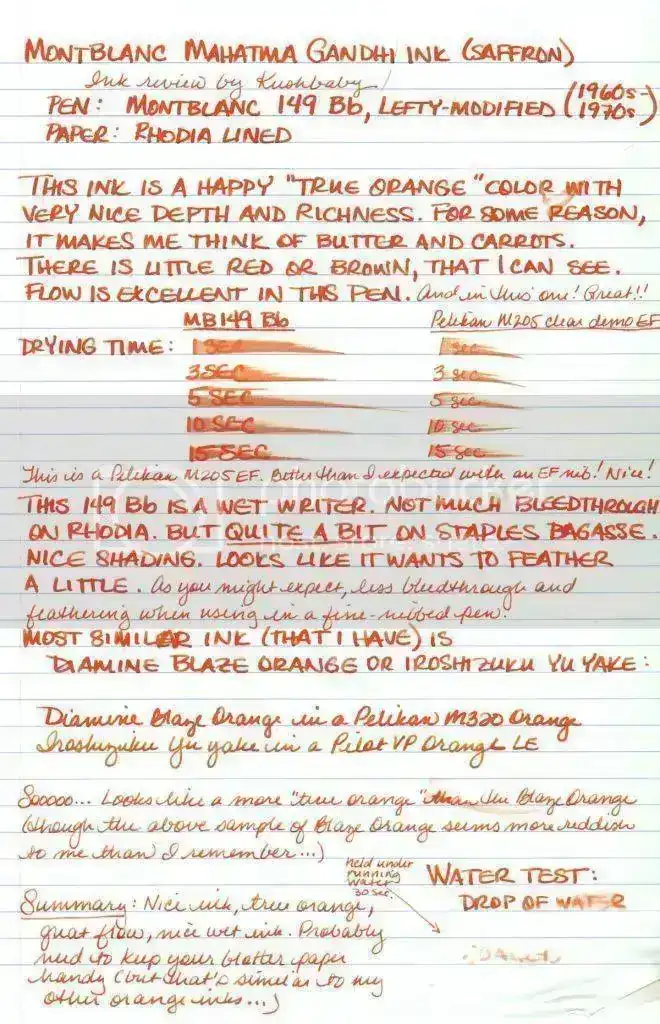 MONTBLANC MAHATMA GANDHI INK (SAFFRON)
Ink review by Kushbaby
PEN: MONTBLANC 149 Bb, LEFTY-MODIFIED (1960s-1970s)
PAPER: RHODIA LINED
THIS INK IS A HAPPY "TRUE ORANGE" COLOR WITH
VERY NICE DEPTH AND RICHNESS. FOR SOME REASON,
IT MAKES ME THINK OF BUTTER AND CARROTS.
THERE IS LITTLE RED OR BROWN, THAT I CAN SEE.
FLOW IS EXCELLENT IN THIS PEN. And in this one! Great!!
MB149 Bb Pelikan M205 clear demo EF
DRYING TIME: 1 SEC 1 sec
3 SEC 3 sec
5 SEC 5 sec
10 SEC 10 sec
15 SEC 15 sec
This is a Pelikan M205 EF. Better than I expected with an EF nib! Nice!
THIS 149 Bb IS A WET WRITER. NOT MUCH BLEEDTHROUGH
ON RHODIA. BUT QUITE A BIT ON STAPLES BAGASSE.
NICE SHADING. LOOKS LIKE IT WANTS TO FEATHER
A LITTLE. As you might expect, less bleedthrough and
feathering when using in a fine-nibbed pen.
MOST SIMILER INK (THAT I HAVE) IS
DIAMINE BLAZE ORANGE OR IROSHIZUKU YU YAKE:
Diamine Blaze Orange in a Pelikan M320 Orange
Iroshizuku Yu yake in a Pilot VP Orange LE
Sooooo... Looks like a more "true orange" than the Blaze Orange
(though the above sample of Blaze Orange seems more reddish
to me than I remember...)
held under
running
water
30 sec.
WATER TEST:
DROP OF WATER
Summary: Nice ink, true orange,
great flow, nice wet ink. Probably
need to keep your blotter paper
handy (but that's similar to my
other orange inks...)